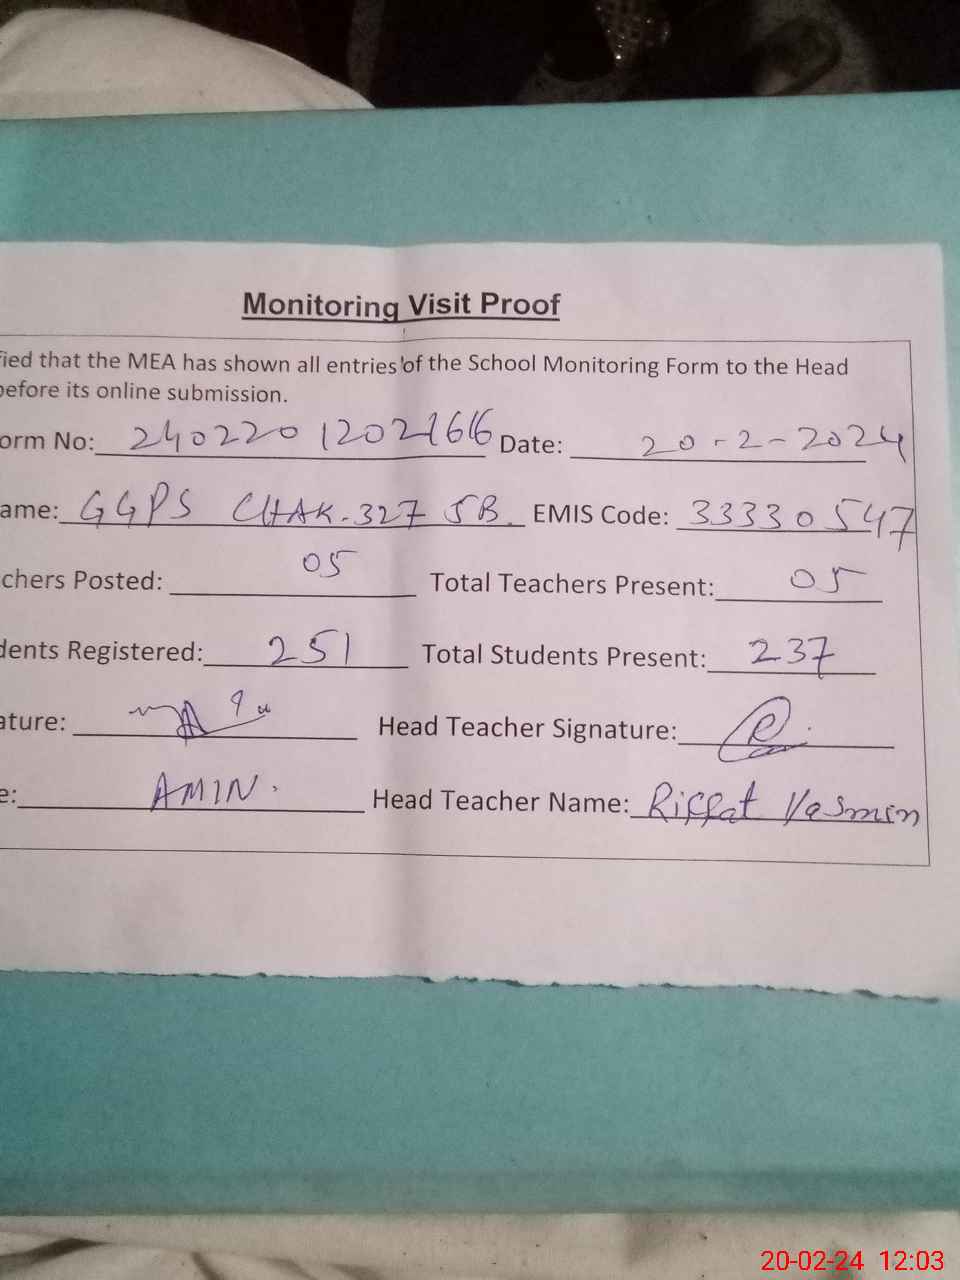 Monitoring Visit Proof
fied that the MEA has shown all entries of the School Monitoring Form to the Head
before its online submission.
orm No: 24022012021666 Date: 20-2-2024
ame: GGPS CHAK.327 JB EMIS Code: 33330547
chers Posted: 05 Total Teachers Present: 05
dents Registered: 251 Total Students Present: 237
ature: Head Teacher Signature:
e: AMIN. Head Teacher Name: Riffat Yasmin
20-02-24 12:03